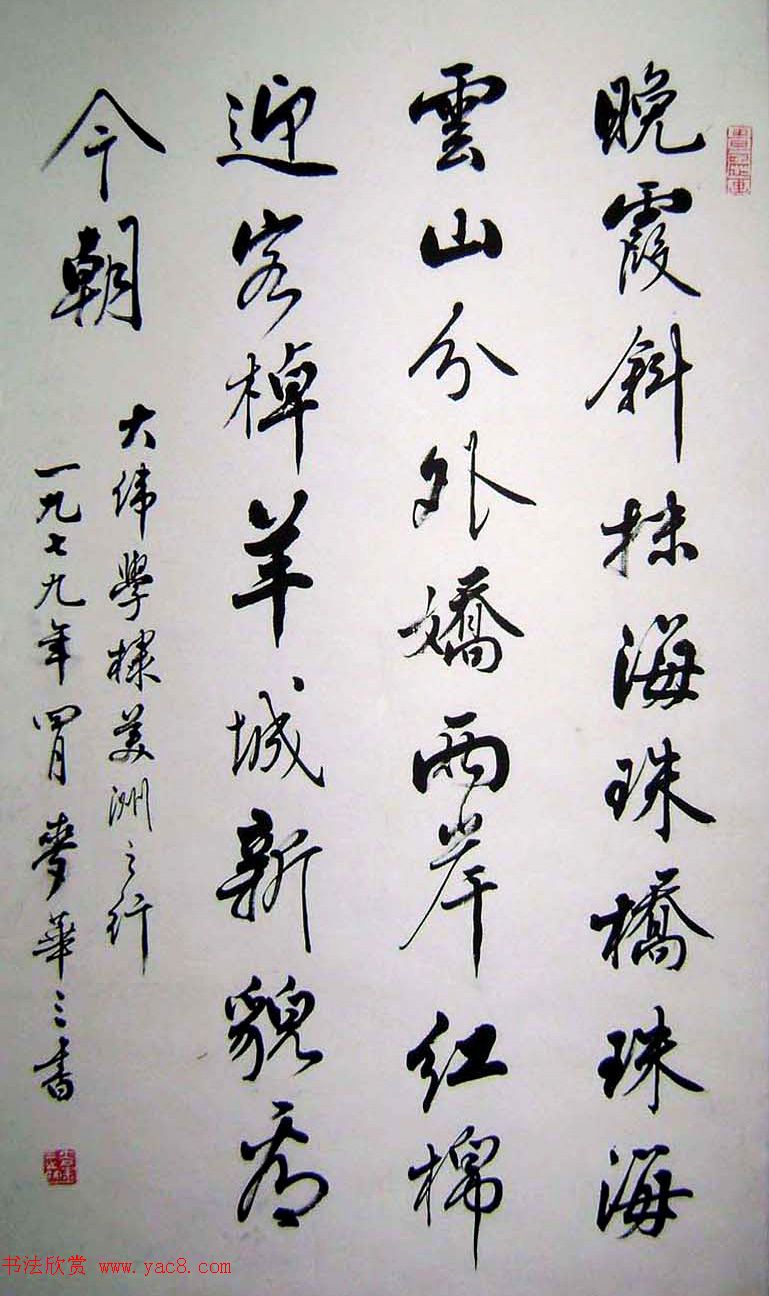 晚霞斜抹海珠橋珠海
雲山分外嬌兩岸紅棉
迎客棹羊城新貌看
今朝
大偉學棣美洲之行
一九七九年四月麥華三書
书法欣赏 www.yac8.com